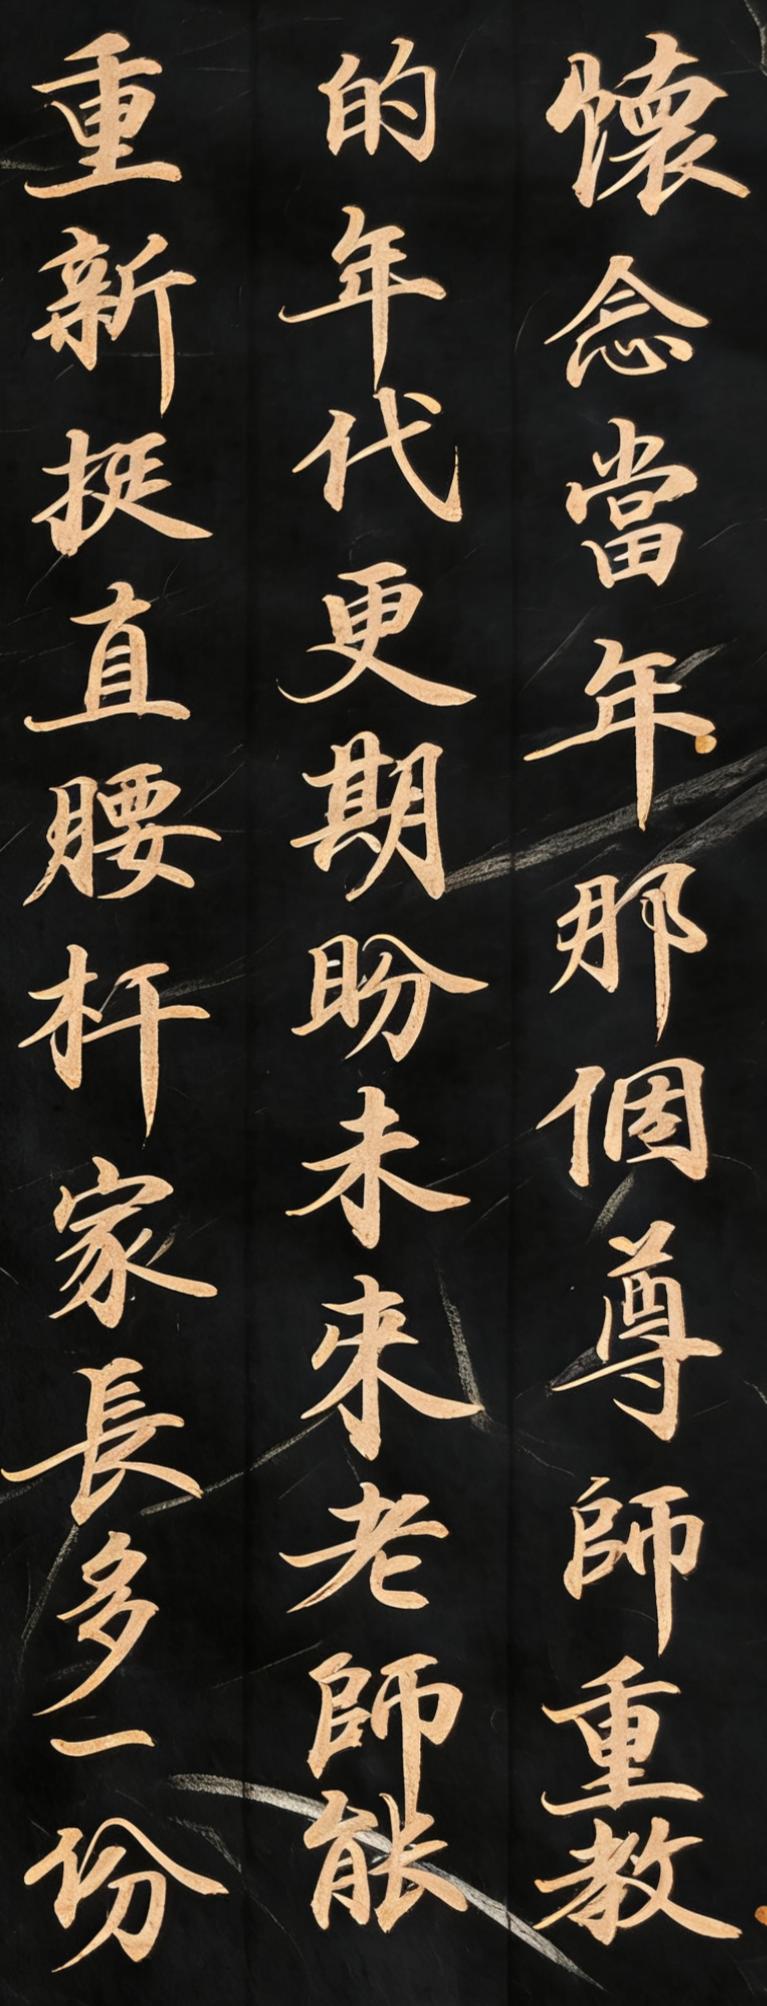 懷念當年那個尊師重教
的年代更期盼未來老師能
重新挺直腰杆家長多一份